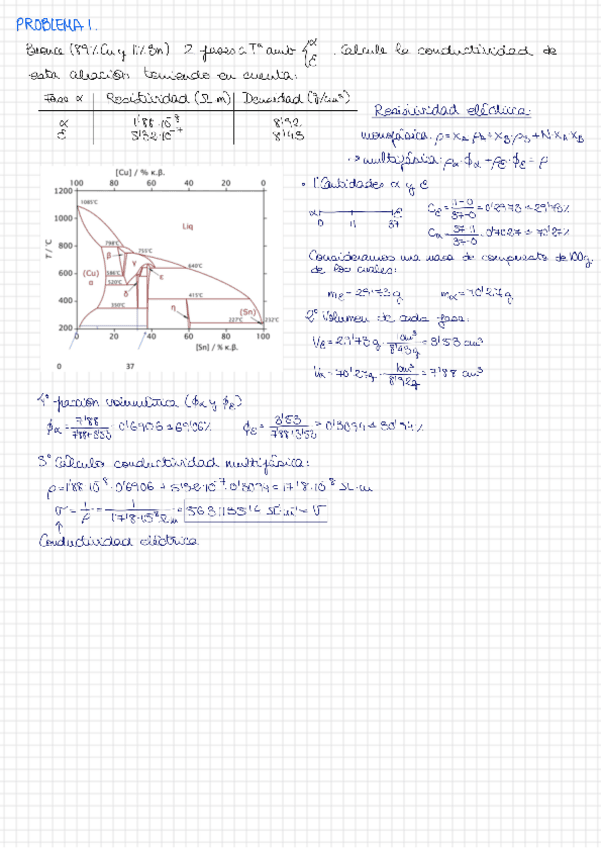 PROBLEMA 1.
Bronce (89% Cu y 11% Sn) 2 fases a Tª amb { α ε . Calcule la conductividad de
esta aleación teniendo en cuenta:
Fase α | Resistividad (Ω m) | Densidad (g/cm³)
α 1'88·10⁻⁸ 8'92
ε 5'32·10⁻⁷ 8'43
Resistividad eléctrica:
monofásica: ρ = X_A ρ_A + X_B·ρ_B + N·X_A X_B
multifásica: ρ_α·ϕ_α + ρ_ε·ϕ_ε = ρ
[Cu] / % κ.β.
100 80 60 40 20 0
1200
1000
800
600
400
200
T / °C
1085°C
Liq
798°C
755°C
β
γ
(Cu)
α
586°C
520°C
640°C
ε
δ
415°C
350°C
η
(Sn)
227°C
232°C
0 20 40 60 80 100
[Sn] / % κ.β.
0 37
1º Cantidades α y ε
α ε
0 11 37
C_ε = 11-0 / 37-0 = 0'2973 → 29'73%
C_α = 37-11 / 37-0 = 0'7027 → 70'27%
Consideramos una masa de compuesto de 100g
de los cuales:
m_ε = 29'73 g m_α = 70'27 g
2º Volumen de cada fase.
V_ε = 29'73 g · 1cm³ / 8'43g = 3'53 cm³
V_α = 70'27g · 1cm³ / 8'92g = 7'88 cm³
4º fracción volumétrica (ϕ_α y ϕ_ε)
ϕ_α = 7'88 / 7'88+3'53 = 0'6906 → 69'06% ϕ_ε = 3'53 / 7'88+3'53 = 0'3094 → 30'94%
5º Cálculo conductividad multifásica:
ρ = 1'88·10⁻⁸·0'6906 + 5'32·10⁻⁷·0'3094 = 17'8·10⁻⁸ Ω·m
σ = 1/ρ = 1 / 17'8·10⁻⁸ Ω m
Conductividad eléctrica